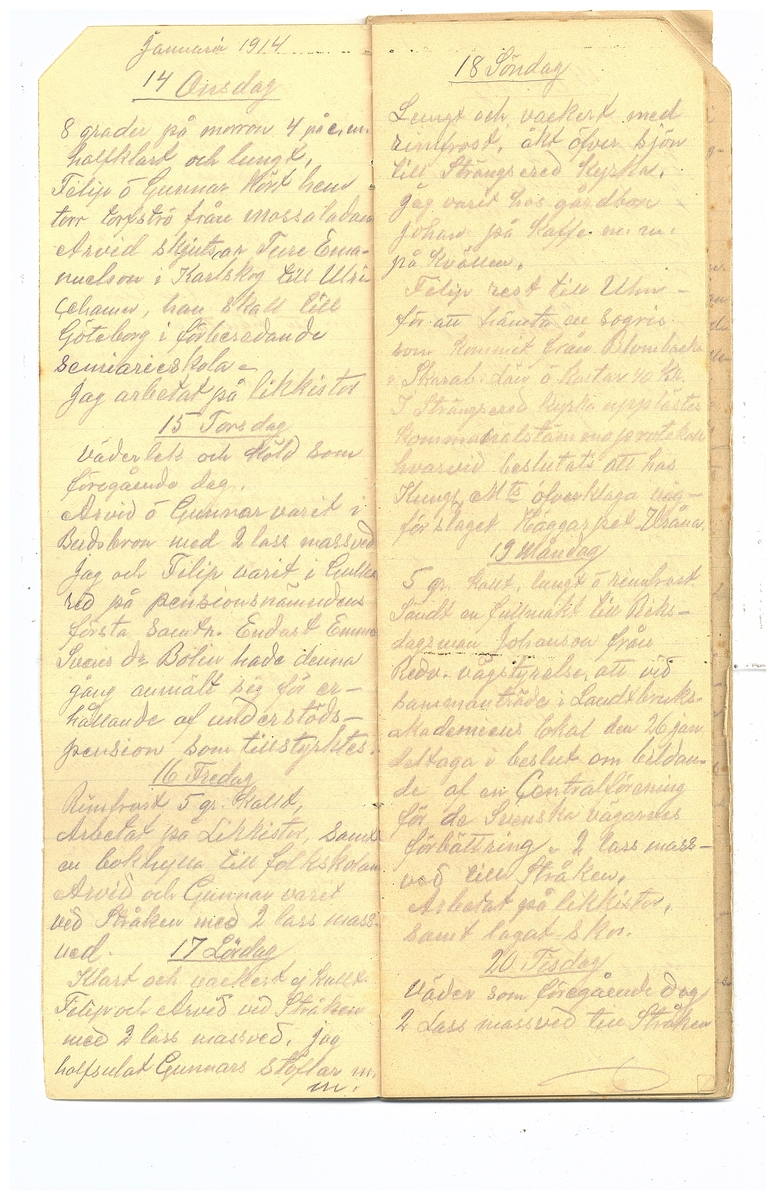 Januari 1914
14 Onsdag
8 grader på morron 4 på e.m.
halfklart och lungt,
Filip ö Gunnar kört hem
torr torfströ från mossaladan
Arvid skjutsar Ture Ema-
nuelson i Karlskog till Ulri-
cehamn, han skall till
Göteborg i förberedande
semiarieskola -
Jag arbetat på likkistor
15 Torsdag
väderlek och köld som
föregående dag.
Arvid ö Gunnar varit i
med 2 lass massved
Jag och Filip varit i Gulle-
red på pensionsnämndens
första samtr. Endast Emma
Sveins dr Bolin hade denna
gång anmält sig för er-
hållande af understöds-
pension som tillstyrktes.
16 Fredag
Rimfrost 5 gr. kallt,
Arbetat på Likkistor, samt
en bokhylla till folkskolan
Arvid och Gunnar varit
vid Stråken med 2 lass mass-
ved. 17 Lördag
Klart och vackert ej kallt
Filip och Arvid vid Stråken
med 2 lass massved. jag
halfsulat Gunnars Stöflar m.
m.
18 Söndag
Lungt och vackert med
rimfrost, åkt öfver sjön
till Strängsered kyrka.
Jag varit hos gårdbon
Johan på kaffe m. m.
på kvällen.
Filip rest till Uhn -
för att hämta en sogris
som kommit från Blombacka
i Skarab. län ö kostar 40 kr.
I Strängsered kyrka upplästes
kommunalstämmoprotokoll
hvarvid beslutats att hos
Kungl. Mts överklaga väg-
förslaget Häggarpet
19 Måndag
5 gr. kallt, lungt ö rimfrost
Sändt en fullmakt till Riks-
dagsman Johanson från
Redv. vägstyrelse, att vid
sammanträde i Landtbruks-
akademiens lokal den 26 jan
deltaga i beslut om bildan-
de af en Centralförening
för de Svenska vägarnes
förbättring - 2 lass mass-
ved till Stråken,
Arbetat på likkistor,
samt lagat skor.
20 Tisdag
Väder som föregående dag
2 Lass massved till Stråken